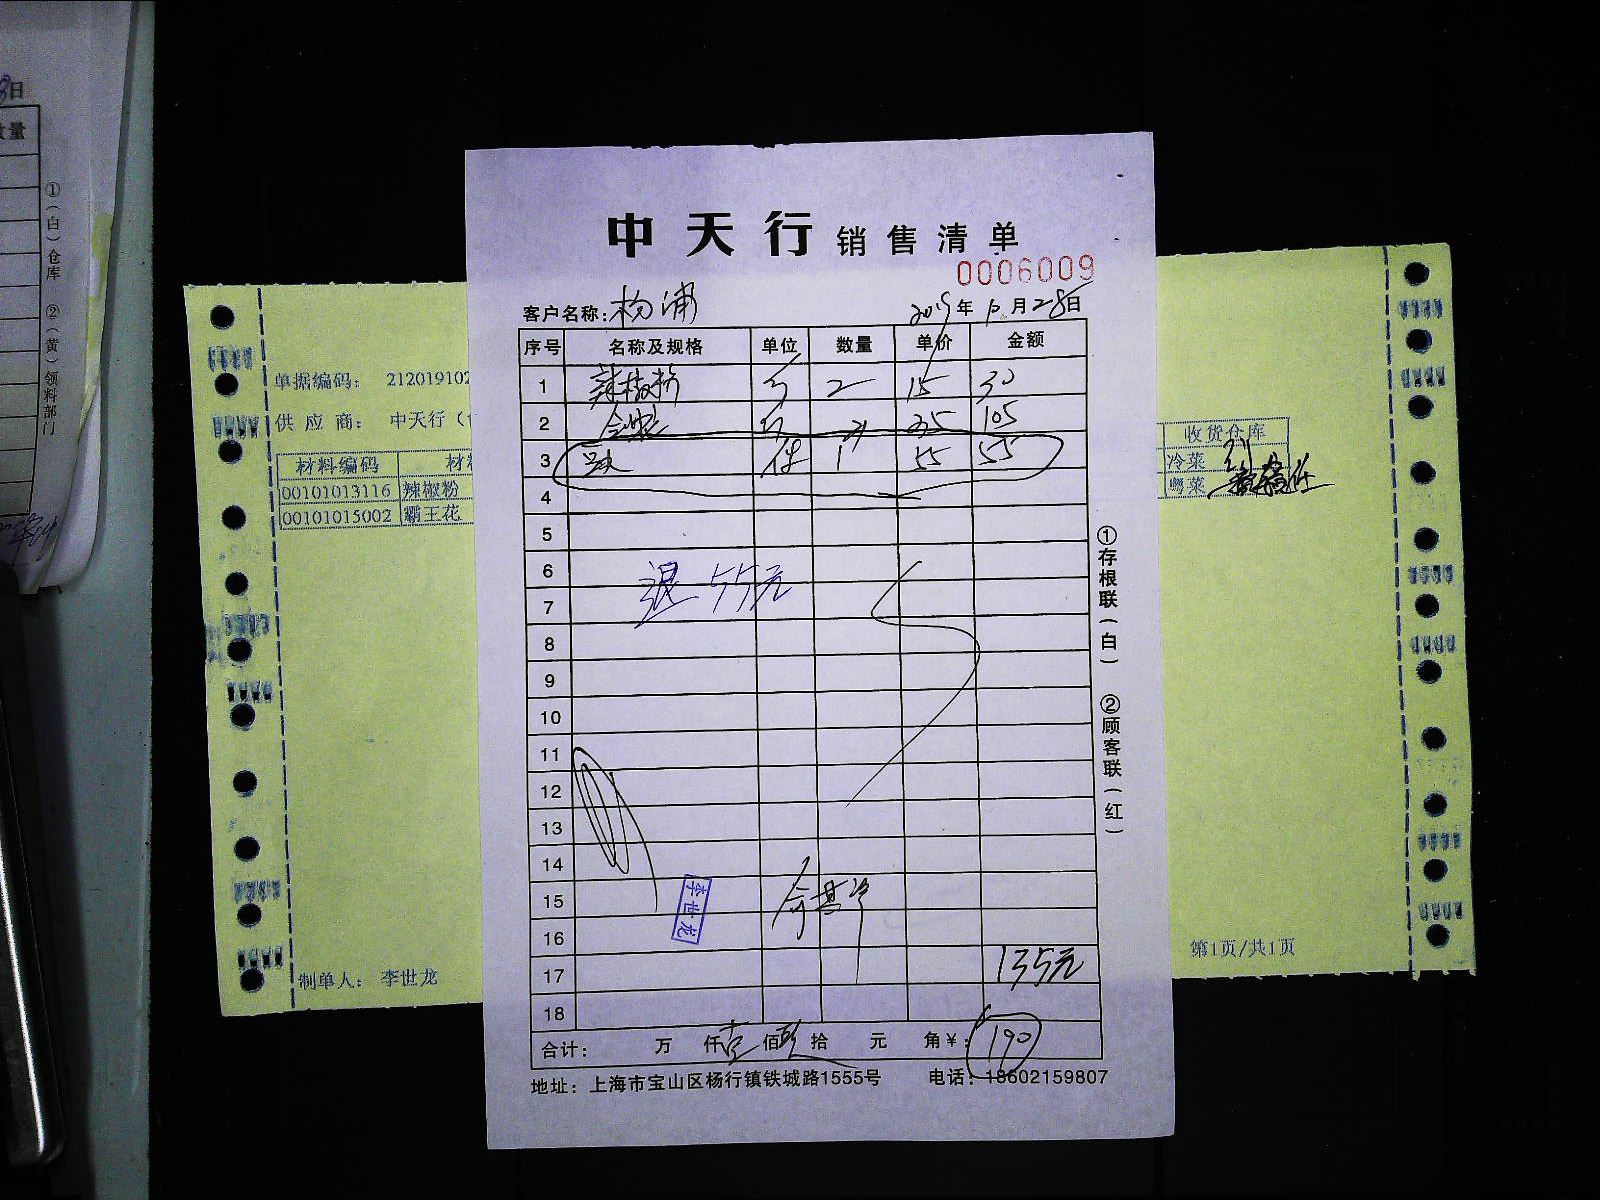 日
数量
①(白)仓库 ②(黄)领料部门
中天行 销售清单
0006009
客户名称: 杨浦 2019年10月28日
序号 名称及规格 单位 数量 单价 金额
1 辣椒粉 2 15 30
2 35 105
3 件 1 55 55
4
5
6
7
退55元
8
9
10
11
12
13
14
15
16
李世龙
17 135元
18
合计: 万 仟 壹 佰 玖 拾 元 角 ¥: 190
地址: 上海市宝山区杨行镇铁城路1555号 电话: 18602159807
①存根联(白) ②顾客联(红)
单据编码: 212019102
供应商: 中天行(
材料编码 材
00101013116 辣椒粉
00101015002 霸王花
制单人: 李世龙
收货仓库
冷菜
粤菜
第1页/共1页